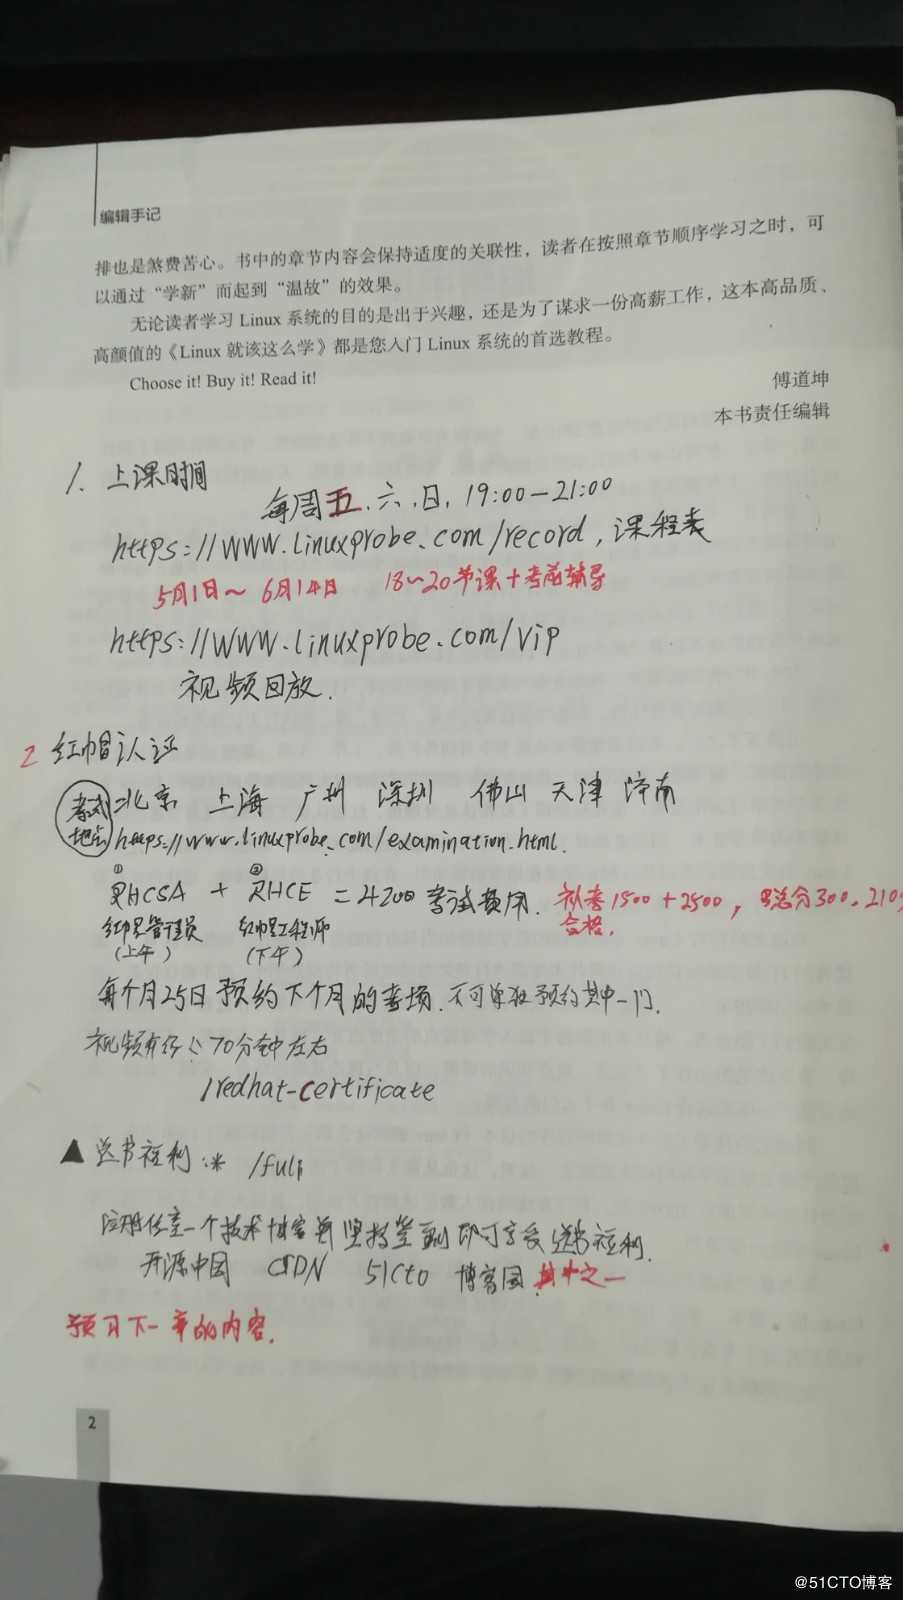 编辑手记
排也是煞费苦心。书中的章节内容会保持适度的关联性，读者在按照章节顺序学习之时，可
以通过“学新”而起到“温故”的效果。
无论读者学习 Linux 系统的目的是出于兴趣，还是为了谋求一份高薪工作，这本高品质、
高颜值的《Linux 就该这么学》都是您入门 Linux 系统的首选教程。
Choose it! Buy it! Read it!
傅道坤
本书责任编辑
1. 上课时间
每周五、六、日，19:00—21:00
https://www.linuxprobe.com/record，课程表
5月1日～6月14日 18~20节课+考前辅导
https://www.linuxprobe.com/vip
视频回放.
2 红帽认证
考试地点：北京 上海 广州 深圳 佛山 天津 济南
https://www.linuxprobe.com/examination.html.
① ②
RHCSA + RHCE = 4200 考试费用. 补考1500+2500，总分300, 210
合格.
红帽管理员 红帽工程师
(上午) (下午)
每个月25日预约下个月的考场.不可单独预约其中一门.
视频 70分钟左右
/redhat-certificate
▲ 送书福利 /fuli
注册任意一个技术博客并坚持签到即可享受送书福利.
开源中国 CSDN 51cto 博客园.其中之一
预习下一章的内容.
2
@51CTO博客